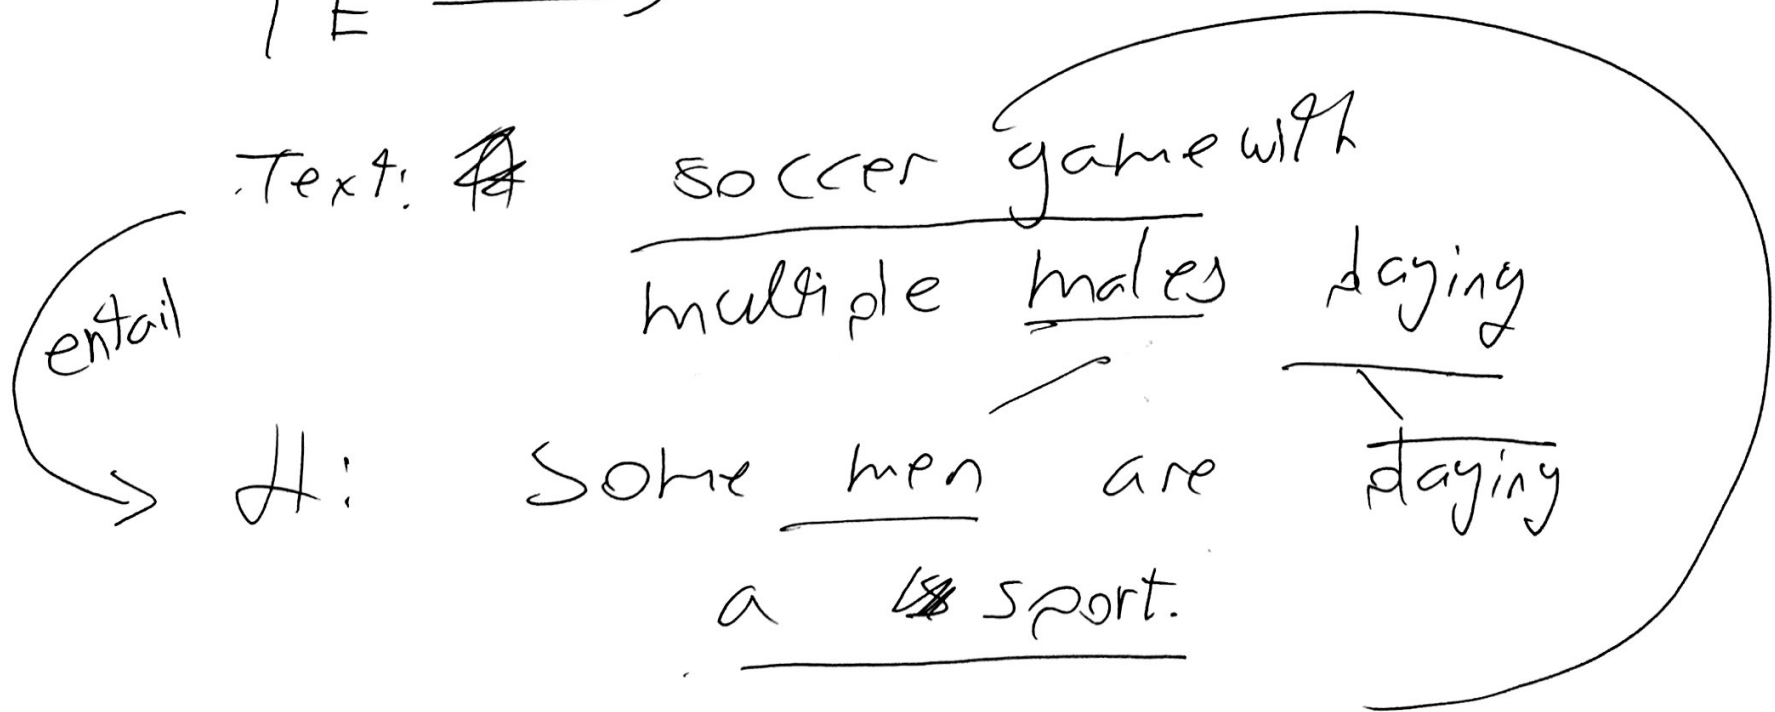 Text: soccer game with
multiple males playing
entail
H: Some men are playing
a sport.